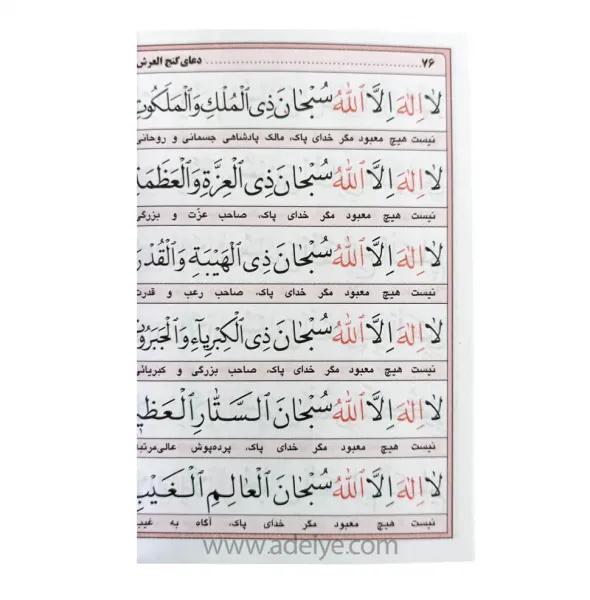 ۷۶ ........ دعای گنج العرش
لَا اِلٰهَ اِلَّا اللهُ سُبْحَانَ ذِی الْمُلْكِ وَالْمَلَكُوتِ
نیست هیچ معبود مگر خدای پاک، مالک پادشاهی جسمانی و روحانی
لَا اِلٰهَ اِلَّا اللهُ سُبْحَانَ ذِی الْعِزَّةِ وَالْعَظَمَةِ
نیست هیچ معبود مگر خدای پاک، صاحب عزّت و بزرگی
لَا اِلٰهَ اِلَّا اللهُ سُبْحَانَ ذِی الْهَیْبَةِ وَالْقُدْرَ
نیست هیچ معبود مگر خدای پاک، صاحب رعب و قدرت
لَا اِلٰهَ اِلَّا اللهُ سُبْحَانَ ذِی الْكِبْرِیَآءِ وَالْجَبَرُوتِ
نیست هیچ معبود مگر خدای پاک، صاحب بزرگی و کبریائی
لَا اِلٰهَ اِلَّا اللهُ سُبْحَانَ الْسَّتَّارِ الْعَظِیْ
نیست هیچ معبود مگر خدای پاک، پرده‌پوش عالی‌مرتبه
لَا اِلٰهَ اِلَّا اللهُ سُبْحَانَ الْعَالِمِ الْغَیْبِ
نیست هیچ معبود مگر خدای پاک، آگاه به غیب
www.adeiye.com